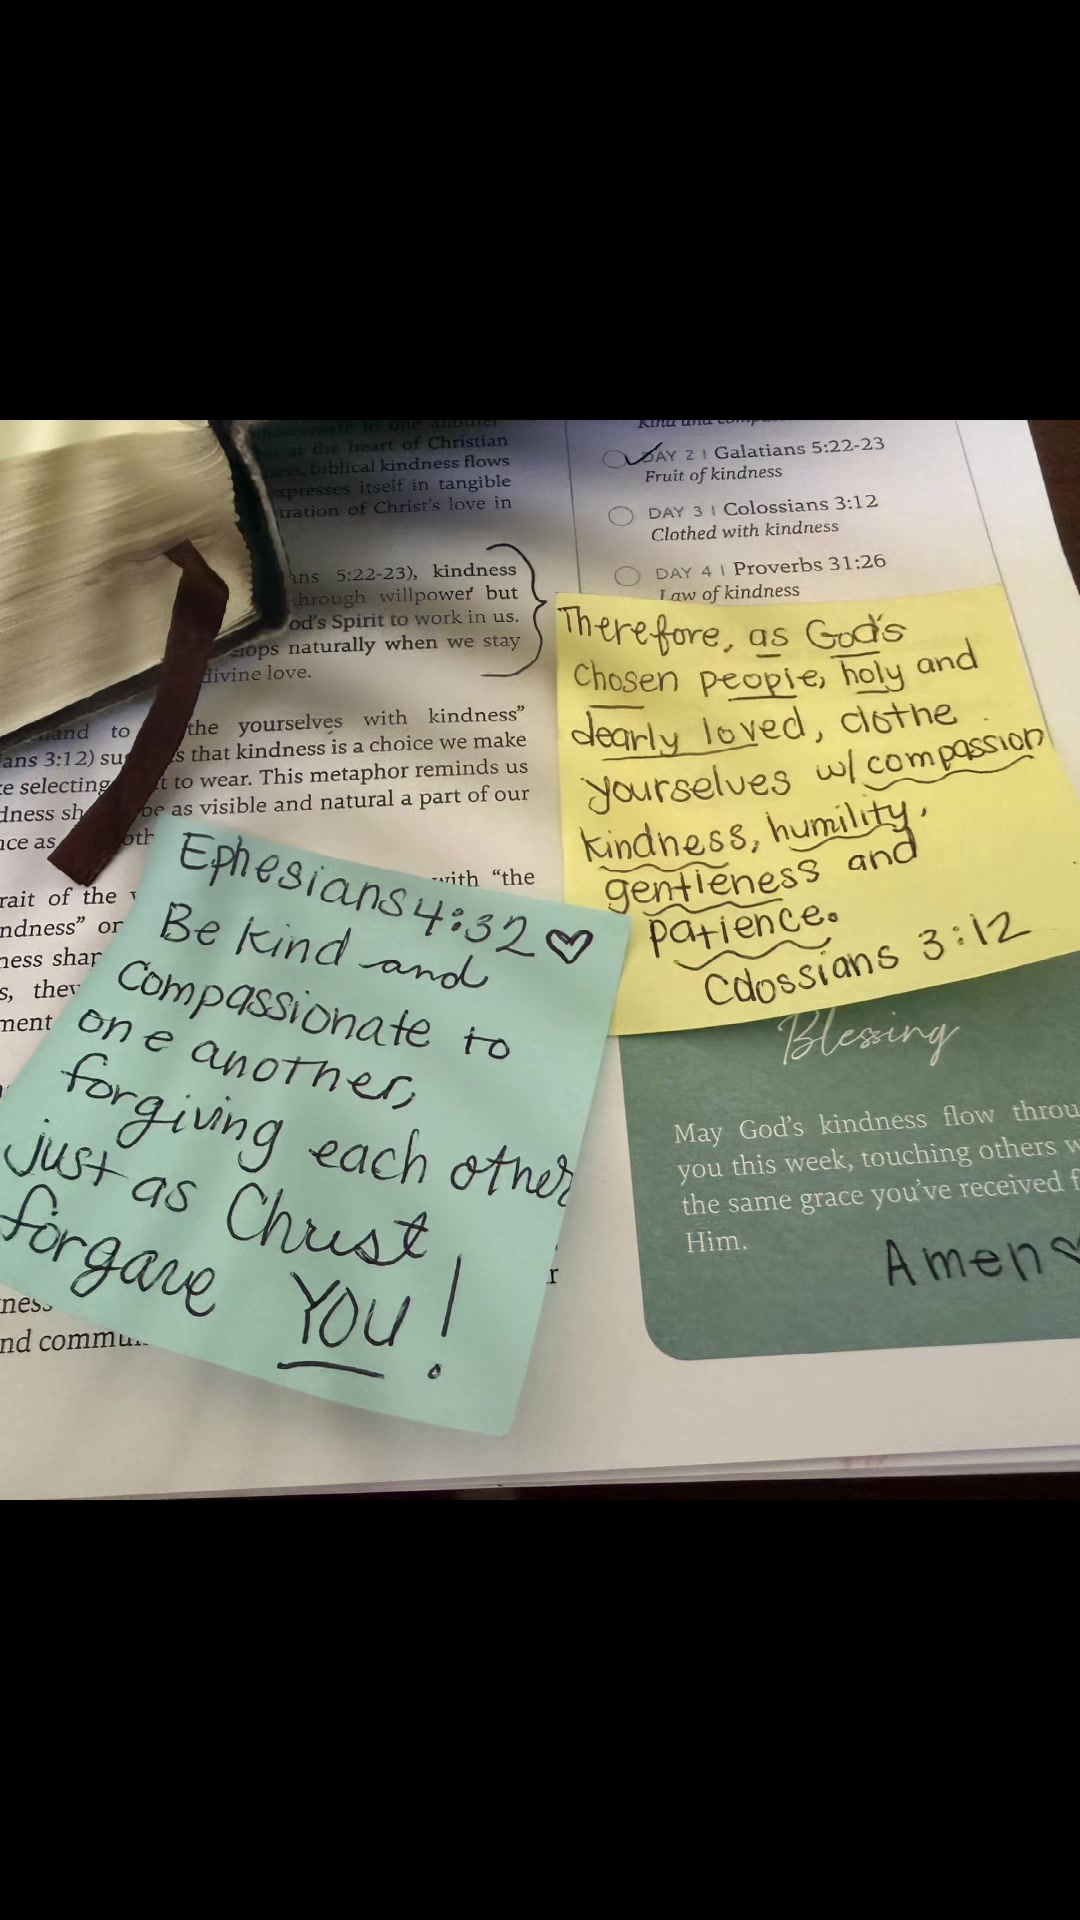 at the heart of Christian
biblical kindness flows
expresses itself in tangible
Christ's love in
5:22-23), kindness
through willpower but
God's Spirit to work in us.
naturally when we stay
divine love.
and to the yourselves with kindness"
3:12) that kindness is a choice we make
selecting to wear. This metaphor reminds us
be as visible and natural a part of our
as
with "the
of the
or
DAY 2 | Galatians 5:22-23
Fruit of kindness
DAY 3 | Colossians 3:12
Clothed with kindness
DAY 4 | Proverbs 31:26
Law of kindness
Therefore, as God's
chosen people, holy and
dearly loved, clothe
yourselves w/ compassion
kindness, humility,
gentleness and
patience.
Colossians 3:12
Ephesians 4:32 ♡
Be kind and
compassionate to
one another,
forgiving each other
just as Christ
forgave YOU!
Blessing
May God's kindness flow
you this week, touching others
the same grace you've received
Him.
Amen ♡